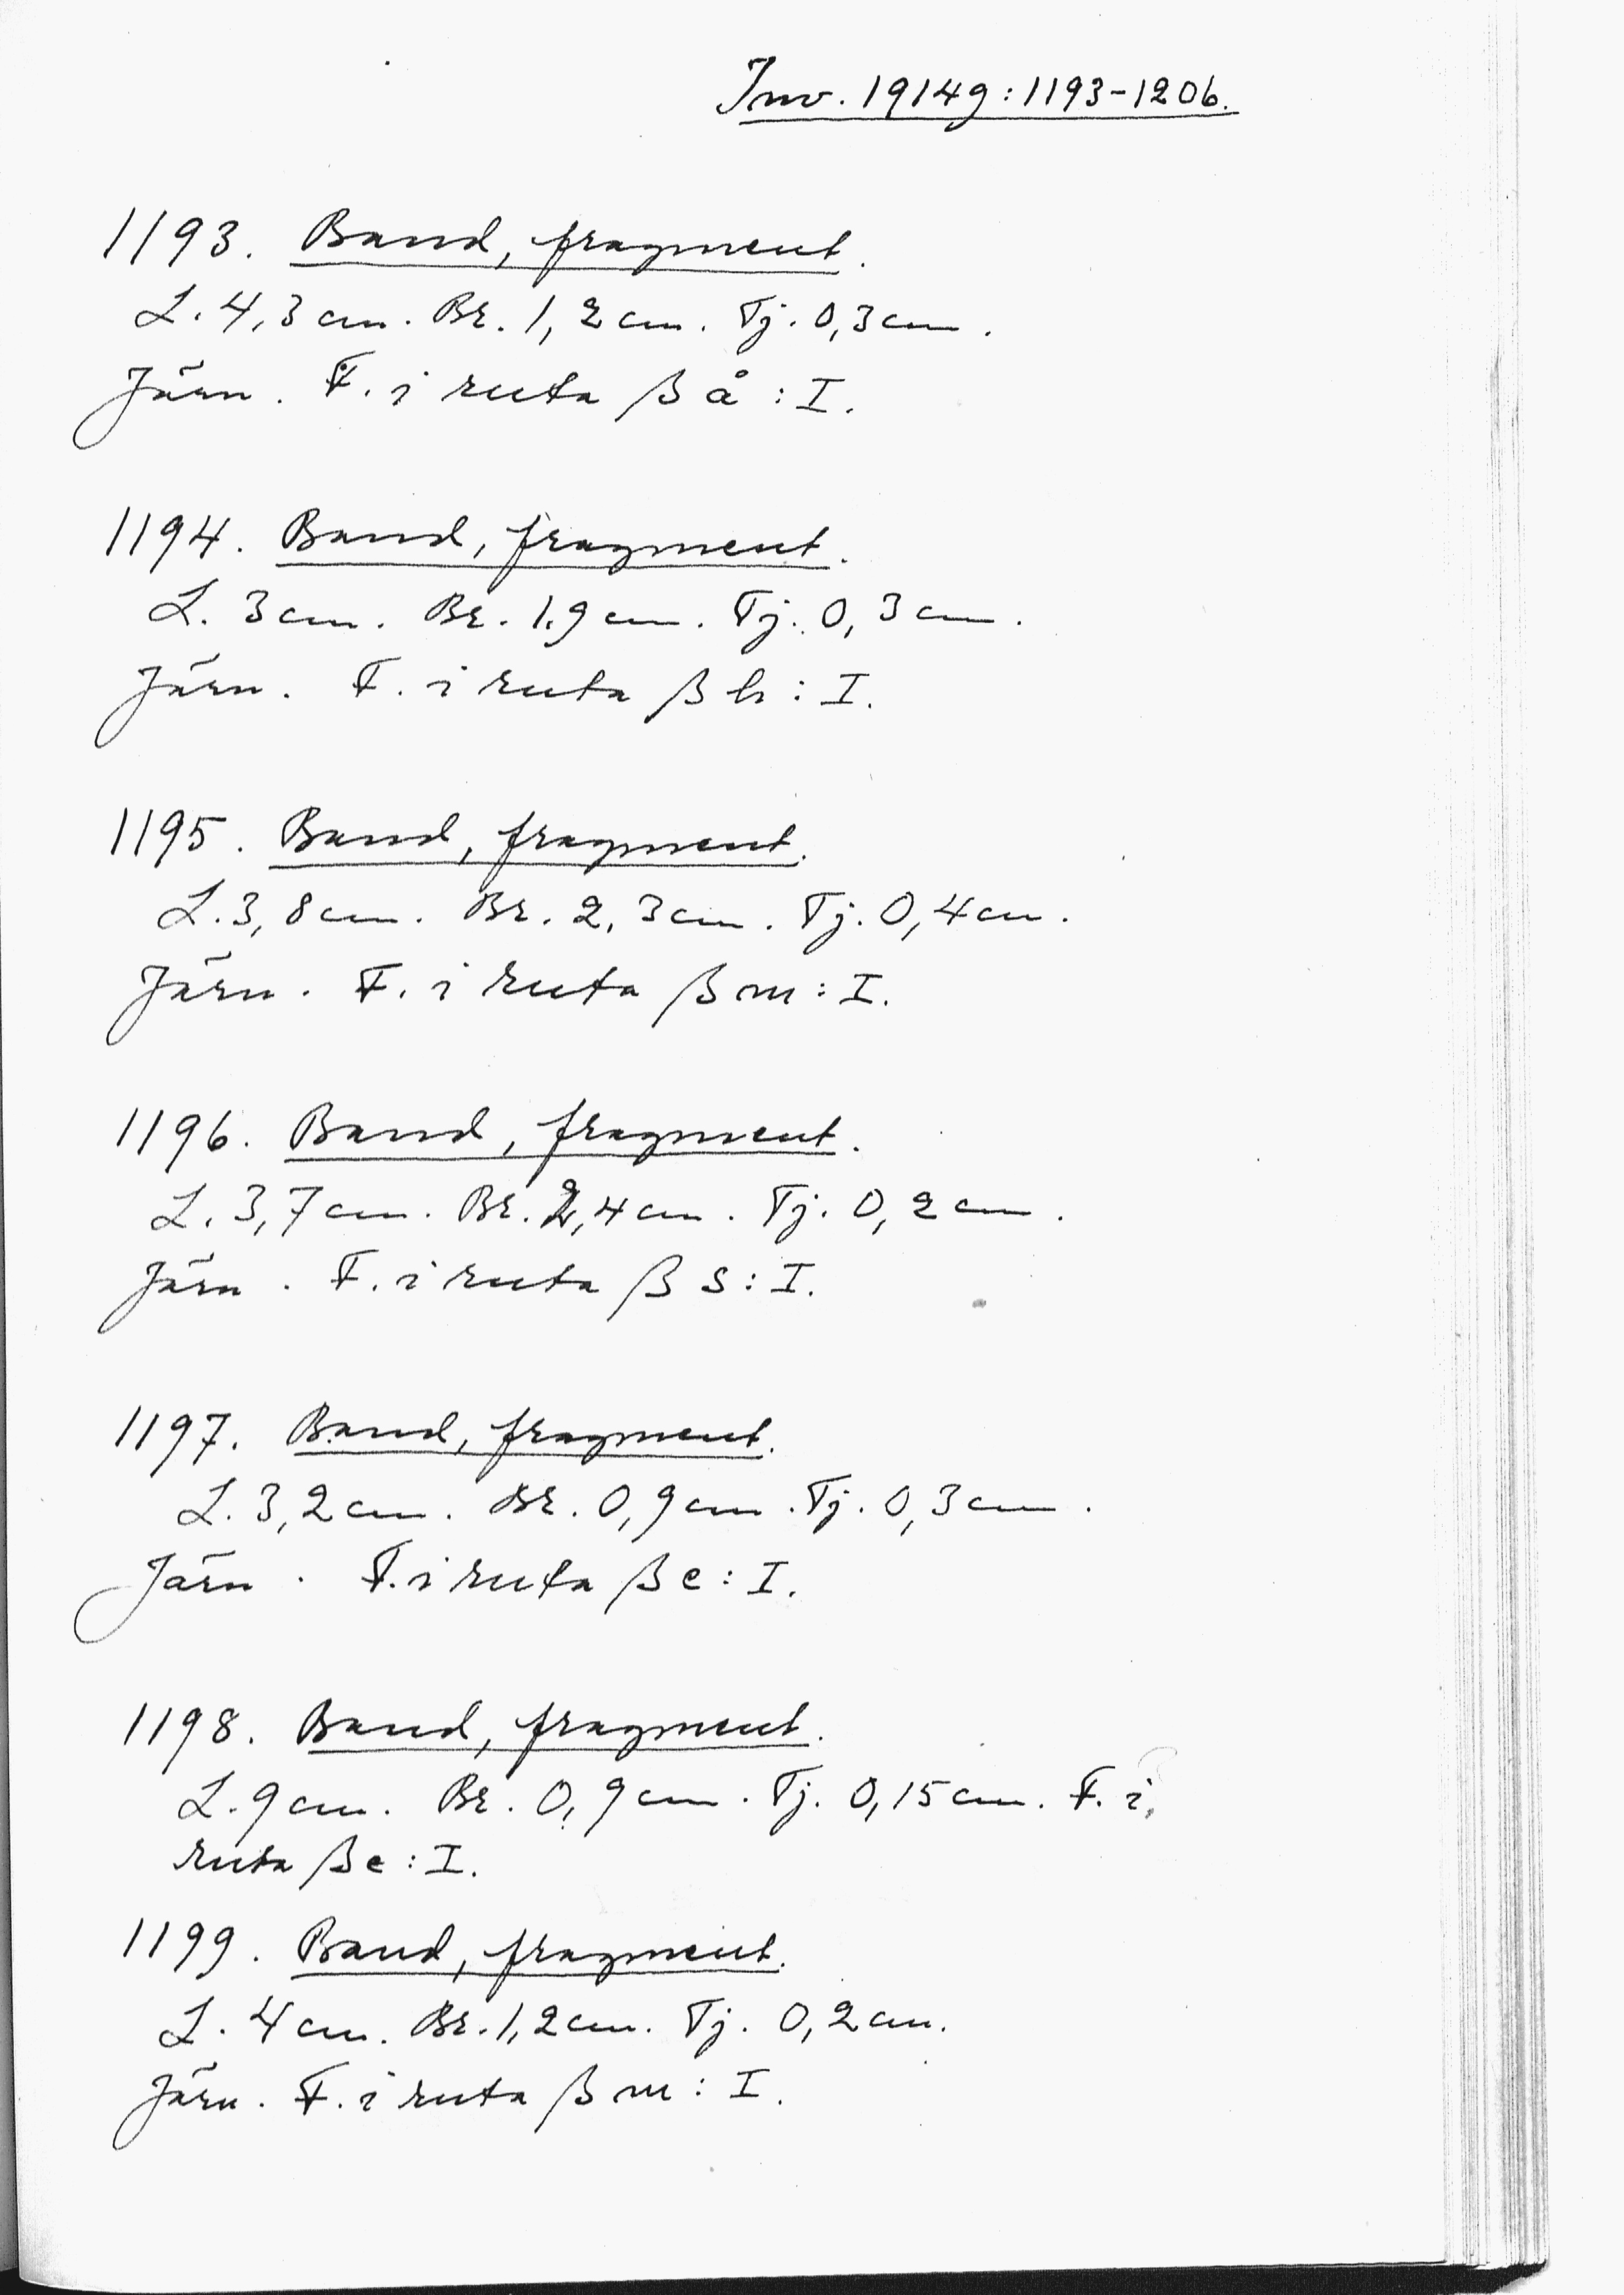 Inv. 19149:1193-1206.
1193. Band, fragment.
L. 4,3 cm. Br. 1,2 cm. Tj. 0,3 cm.
Järn. F. i ruta β å : I.
1194. Band, fragment.
L. 3 cm. Br. 1.9 cm. Tj. 0,3 cm.
Järn. F. i ruta β h : I.
1195. Band, fragment.
L. 3,8 cm. Br. 2,3 cm. Tj. 0,4 cm.
Järn. F. i ruta β m : I.
1196. Band, fragment.
L. 3,7 cm. Br. 2,4 cm. Tj. 0,2 cm.
Järn. F. i ruta β s : I.
1197. Band, fragment.
L. 3,2 cm. Br. 0,9 cm. Tj. 0,3 cm.
Järn. F. i ruta β e : I.
1198. Band, fragment.
L. 9 cm. Br. 0,9 cm. Tj. 0,15 cm. F. i
ruta β e : I.
1199. Band, fragment.
L. 4 cm. Br. 1,2 cm. Tj. 0,2 cm.
Järn. F. i ruta β m : I.